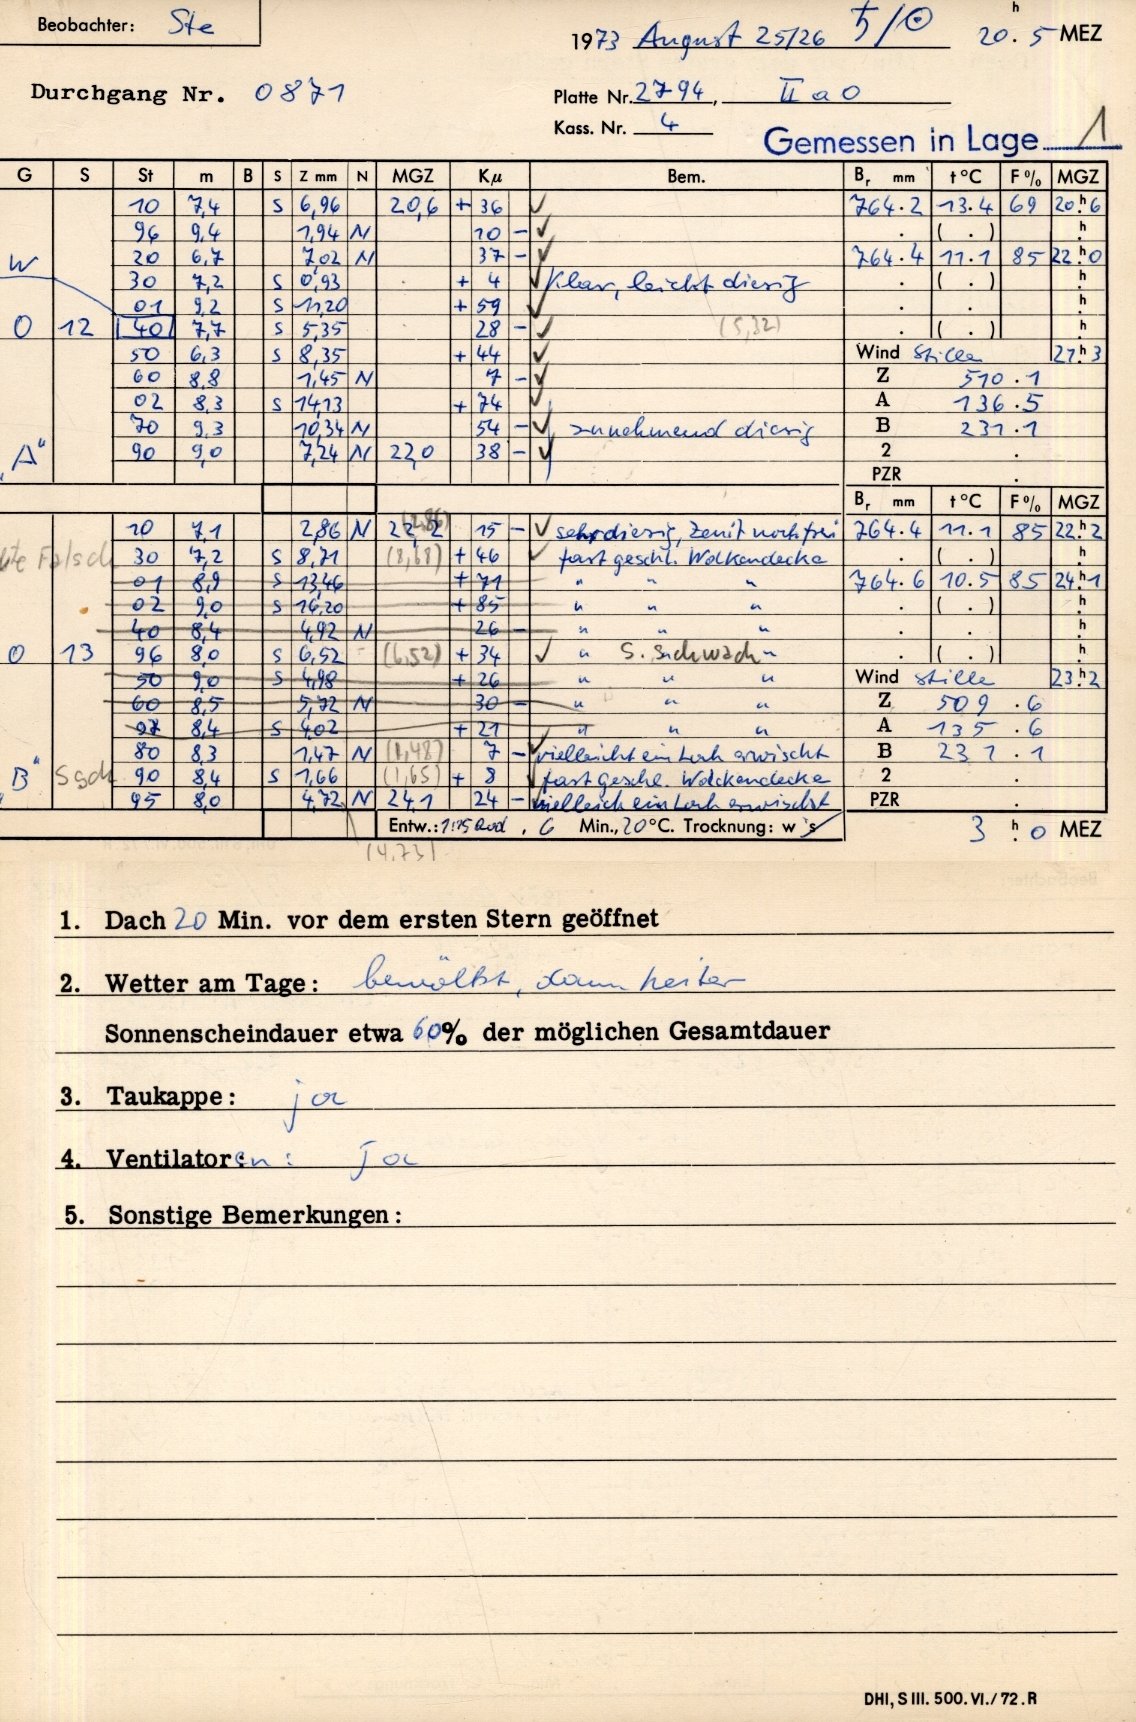 Beobachter: Ste
1973 August 25/26 ♄/☉ 20h.5 MEZ
Durchgang Nr. 0871
Platte Nr. 2794, II a O
Kass. Nr. 4
Gemessen in Lage 1
G S St m B S Z mm N MGZ Kμ Bem. Br mm t °C F % MGZ
10 7,4 S 6,96 20,6 + 36 764.2 13.4 69 20h6
96 9,4 1,94 N 10 - . ( . ) h.
W 20 6,7 7,02 N 37 - 764.4 11.1 85 22h0
30 7,2 S 0,93 + 4 Klar, leicht diesig . ( . ) h.
01 9,2 S 11,20 + 59 . . h.
O 12 40 7,7 S 5,35 28 - (5,32) . ( . ) h.
50 6,3 S 8,35 + 44 Wind Stille 21h3
60 8,8 1,45 N 7 - Z 510.1
02 8,3 S 14,13 + 74 A 136.5
70 9,3 10,34 N 54 - zunehmend diesig B 231.1
"A" 90 9,0 7,24 N 22,0 38 - 2 .
PZR .
Br mm t °C F % MGZ
10 7,1 2,86 N 22,2 (2,86) 15 - sehr diesig, Zenit noch frei 764.4 11.1 85 22h2
Falsch 30 7,2 S 8,71 (8,68) + 46 fast geschl. Wolkendecke . ( . ) h.
01 8,9 S 13,46 + 71 " " " 764.6 10.5 85 24h1
02 9,0 S 16,20 + 85 " " " . ( . ) h.
40 8,4 4,92 N 26 - " " " . . h.
O 13 96 8,0 S 6,52 (6,52) + 34 " S. Schwach " . ( . ) h.
50 9,0 S 4,98 + 26 " " " Wind Stille 23h2
60 8,5 5,72 N 30 - " " " Z 509.6
07 8,4 S 4,02 + 21 " " " A 135.6
80 8,3 1,47 N (1,48) 7 - vielleicht ein Loch erwischt B 231.1
"B" Ssch 90 8,4 S 1,66 (1,65) + 8 fast geschl. Wolkendecke 2 .
95 8,0 4,72 N 24,1 24 - vielleich ein Loch erwischt PZR .
Entw.: , 6 Min., 20 °C. Trocknung: w s 3h.0 MEZ
(4,73)
1. Dach 20 Min. vor dem ersten Stern geöffnet
2. Wetter am Tage: bewölkt, dann heiter
Sonnenscheindauer etwa 60% der möglichen Gesamtdauer
3. Taukappe: ja
4. Ventilatoren: ja
5. Sonstige Bemerkungen:
DHI, S III. 500. VI./72. R